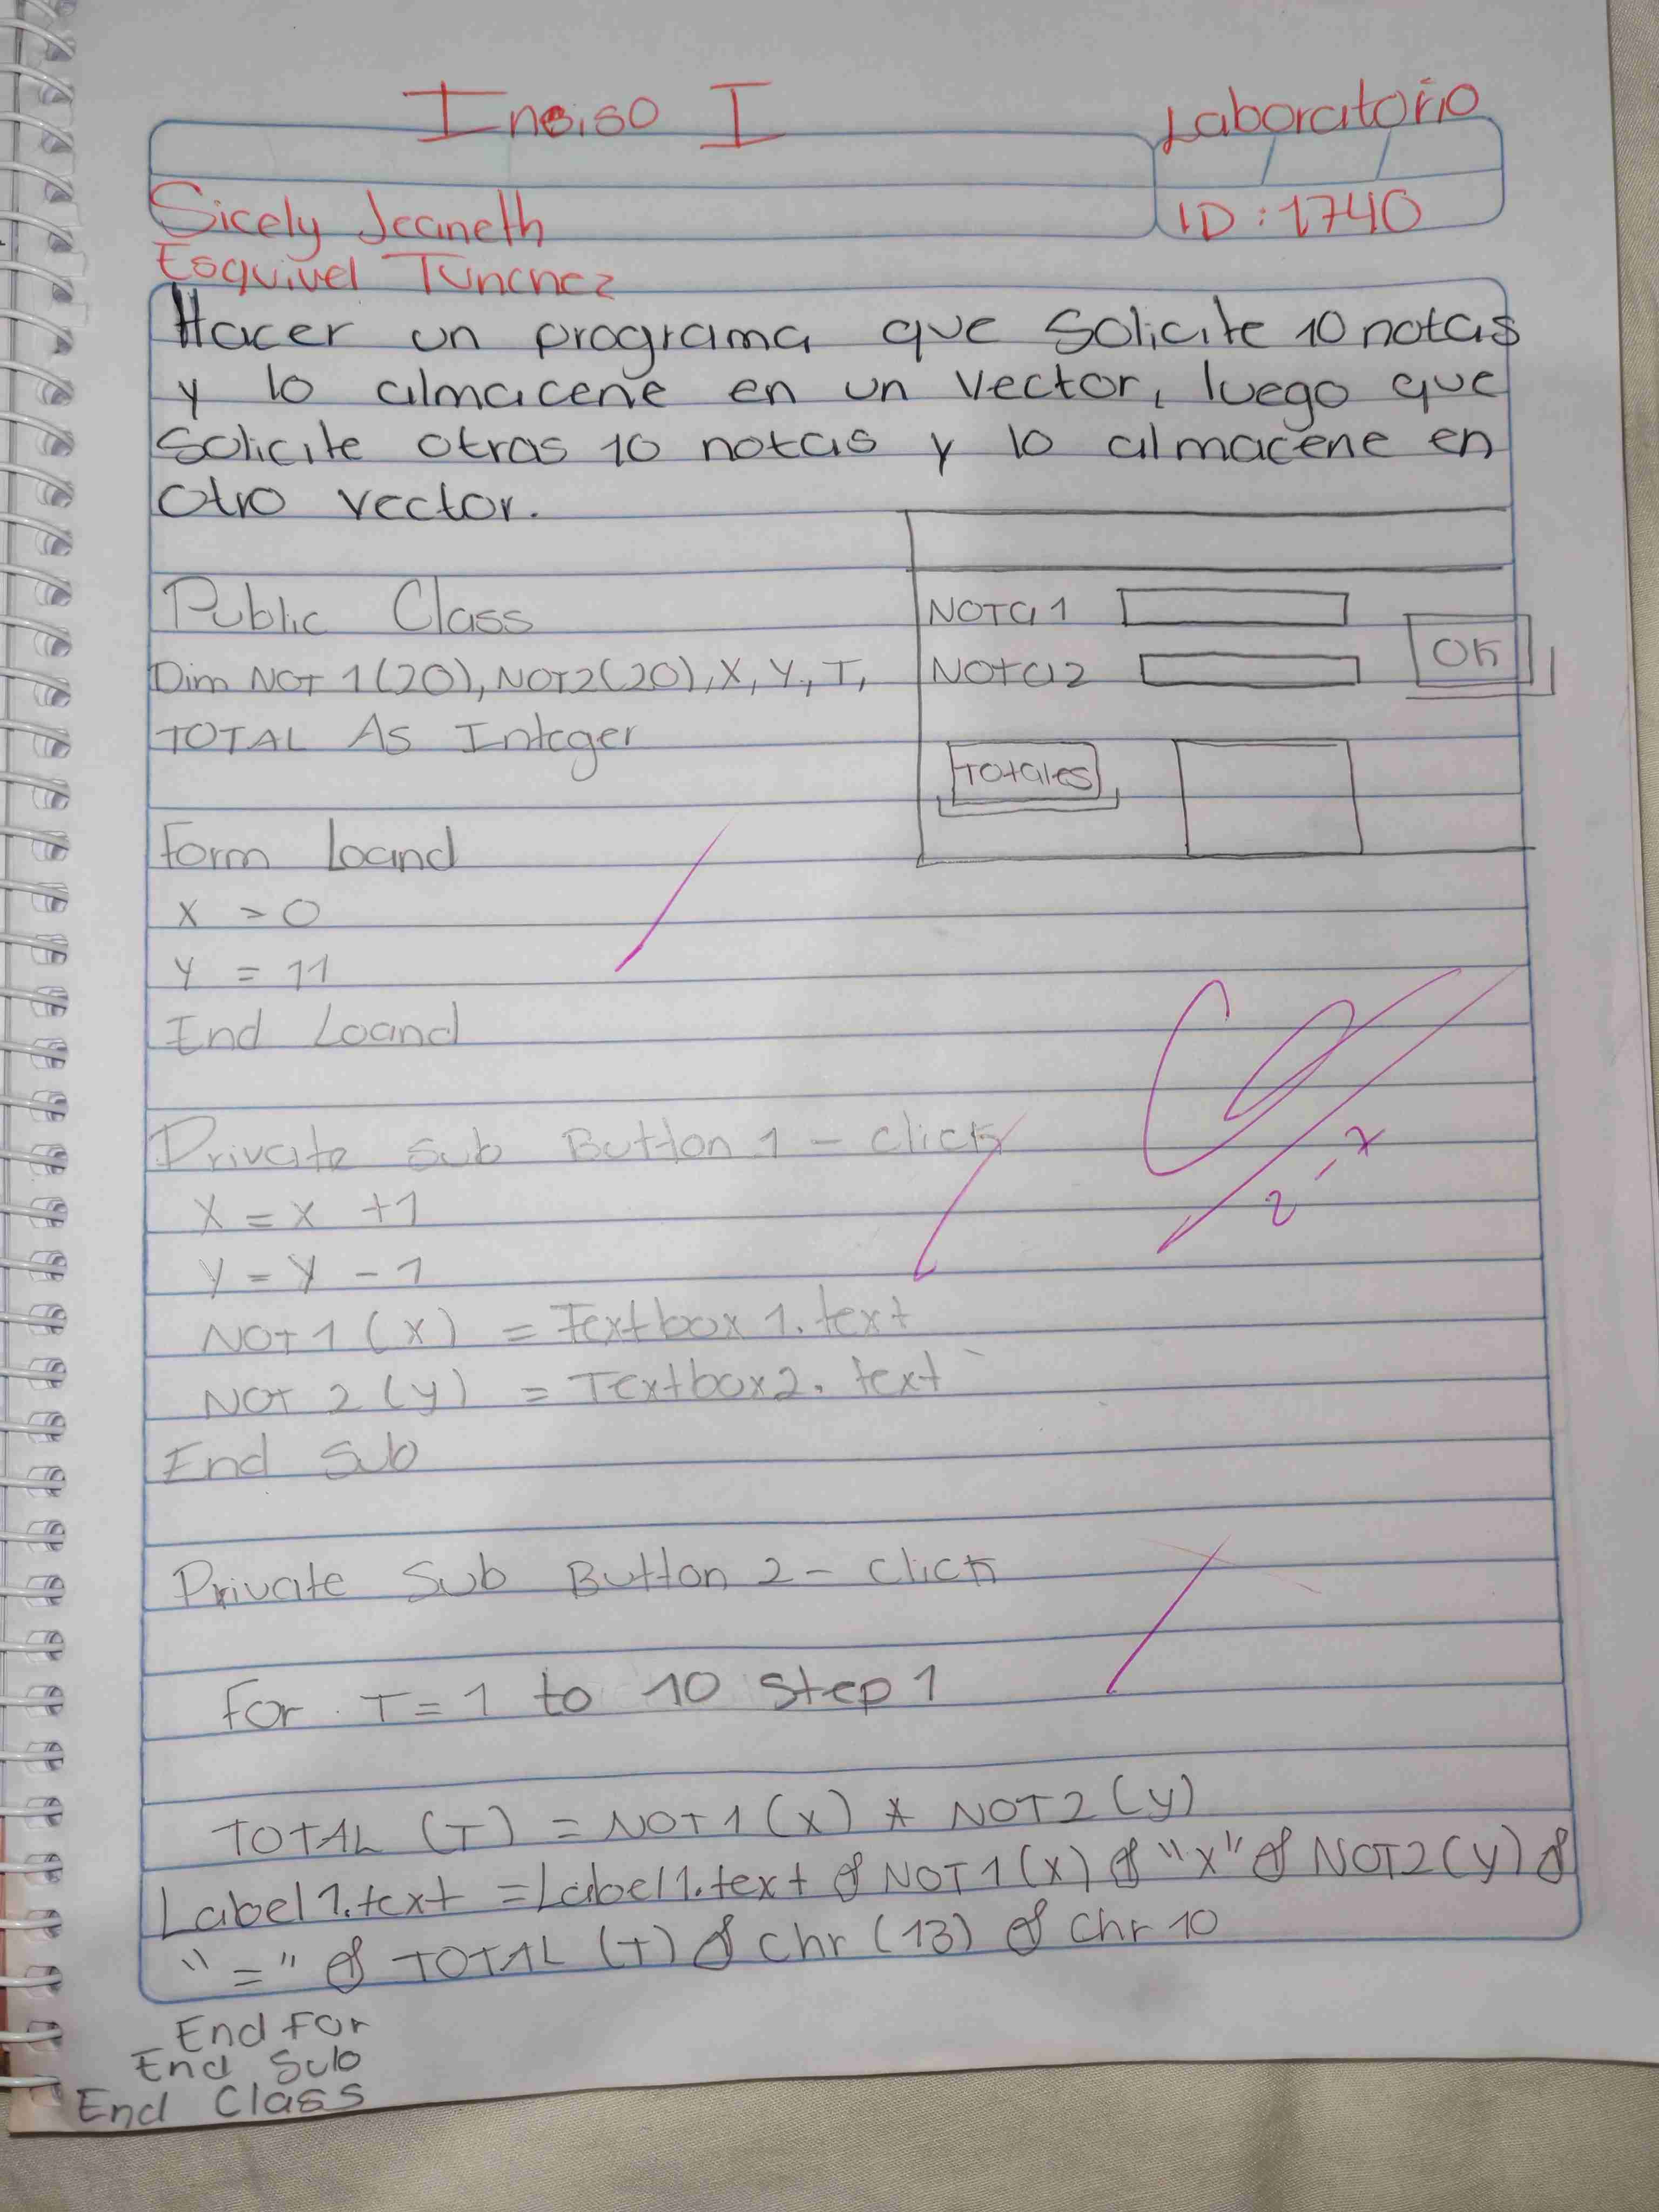 Inciso I
Laboratorio
Sicely Jeaneth
ID: 1740
Esquivel Tunchez
Hacer un programa que solicite 10 notas
y lo almacene en un vector, luego que
solicite otras 10 notas y lo almacene en
otro vector.
Public Class
Dim NOT 1(20), NOT2(20), X, Y, T,
TOTAL As Integer
NOTA 1
OK
NOTA2
Totales
Form Loand
X = 0
Y = 11
End Loand
Private Sub Button 1 - click
X = X + 1
Y = Y - 1
NOT 1 (X) = Textbox 1. text
NOT 2 (y) = Textbox2. text
End Sub
Private Sub Button 2 - click
For T = 1 to 10 Step 1
TOTAL (T) = NOT1 (X) * NOT2 (y)
Label1.text = Label1.text & NOT1(X) & "X" & NOT2(y) &
"=" & TOTAL (T) & chr (13) & chr 10
End For
End Sub
End Class